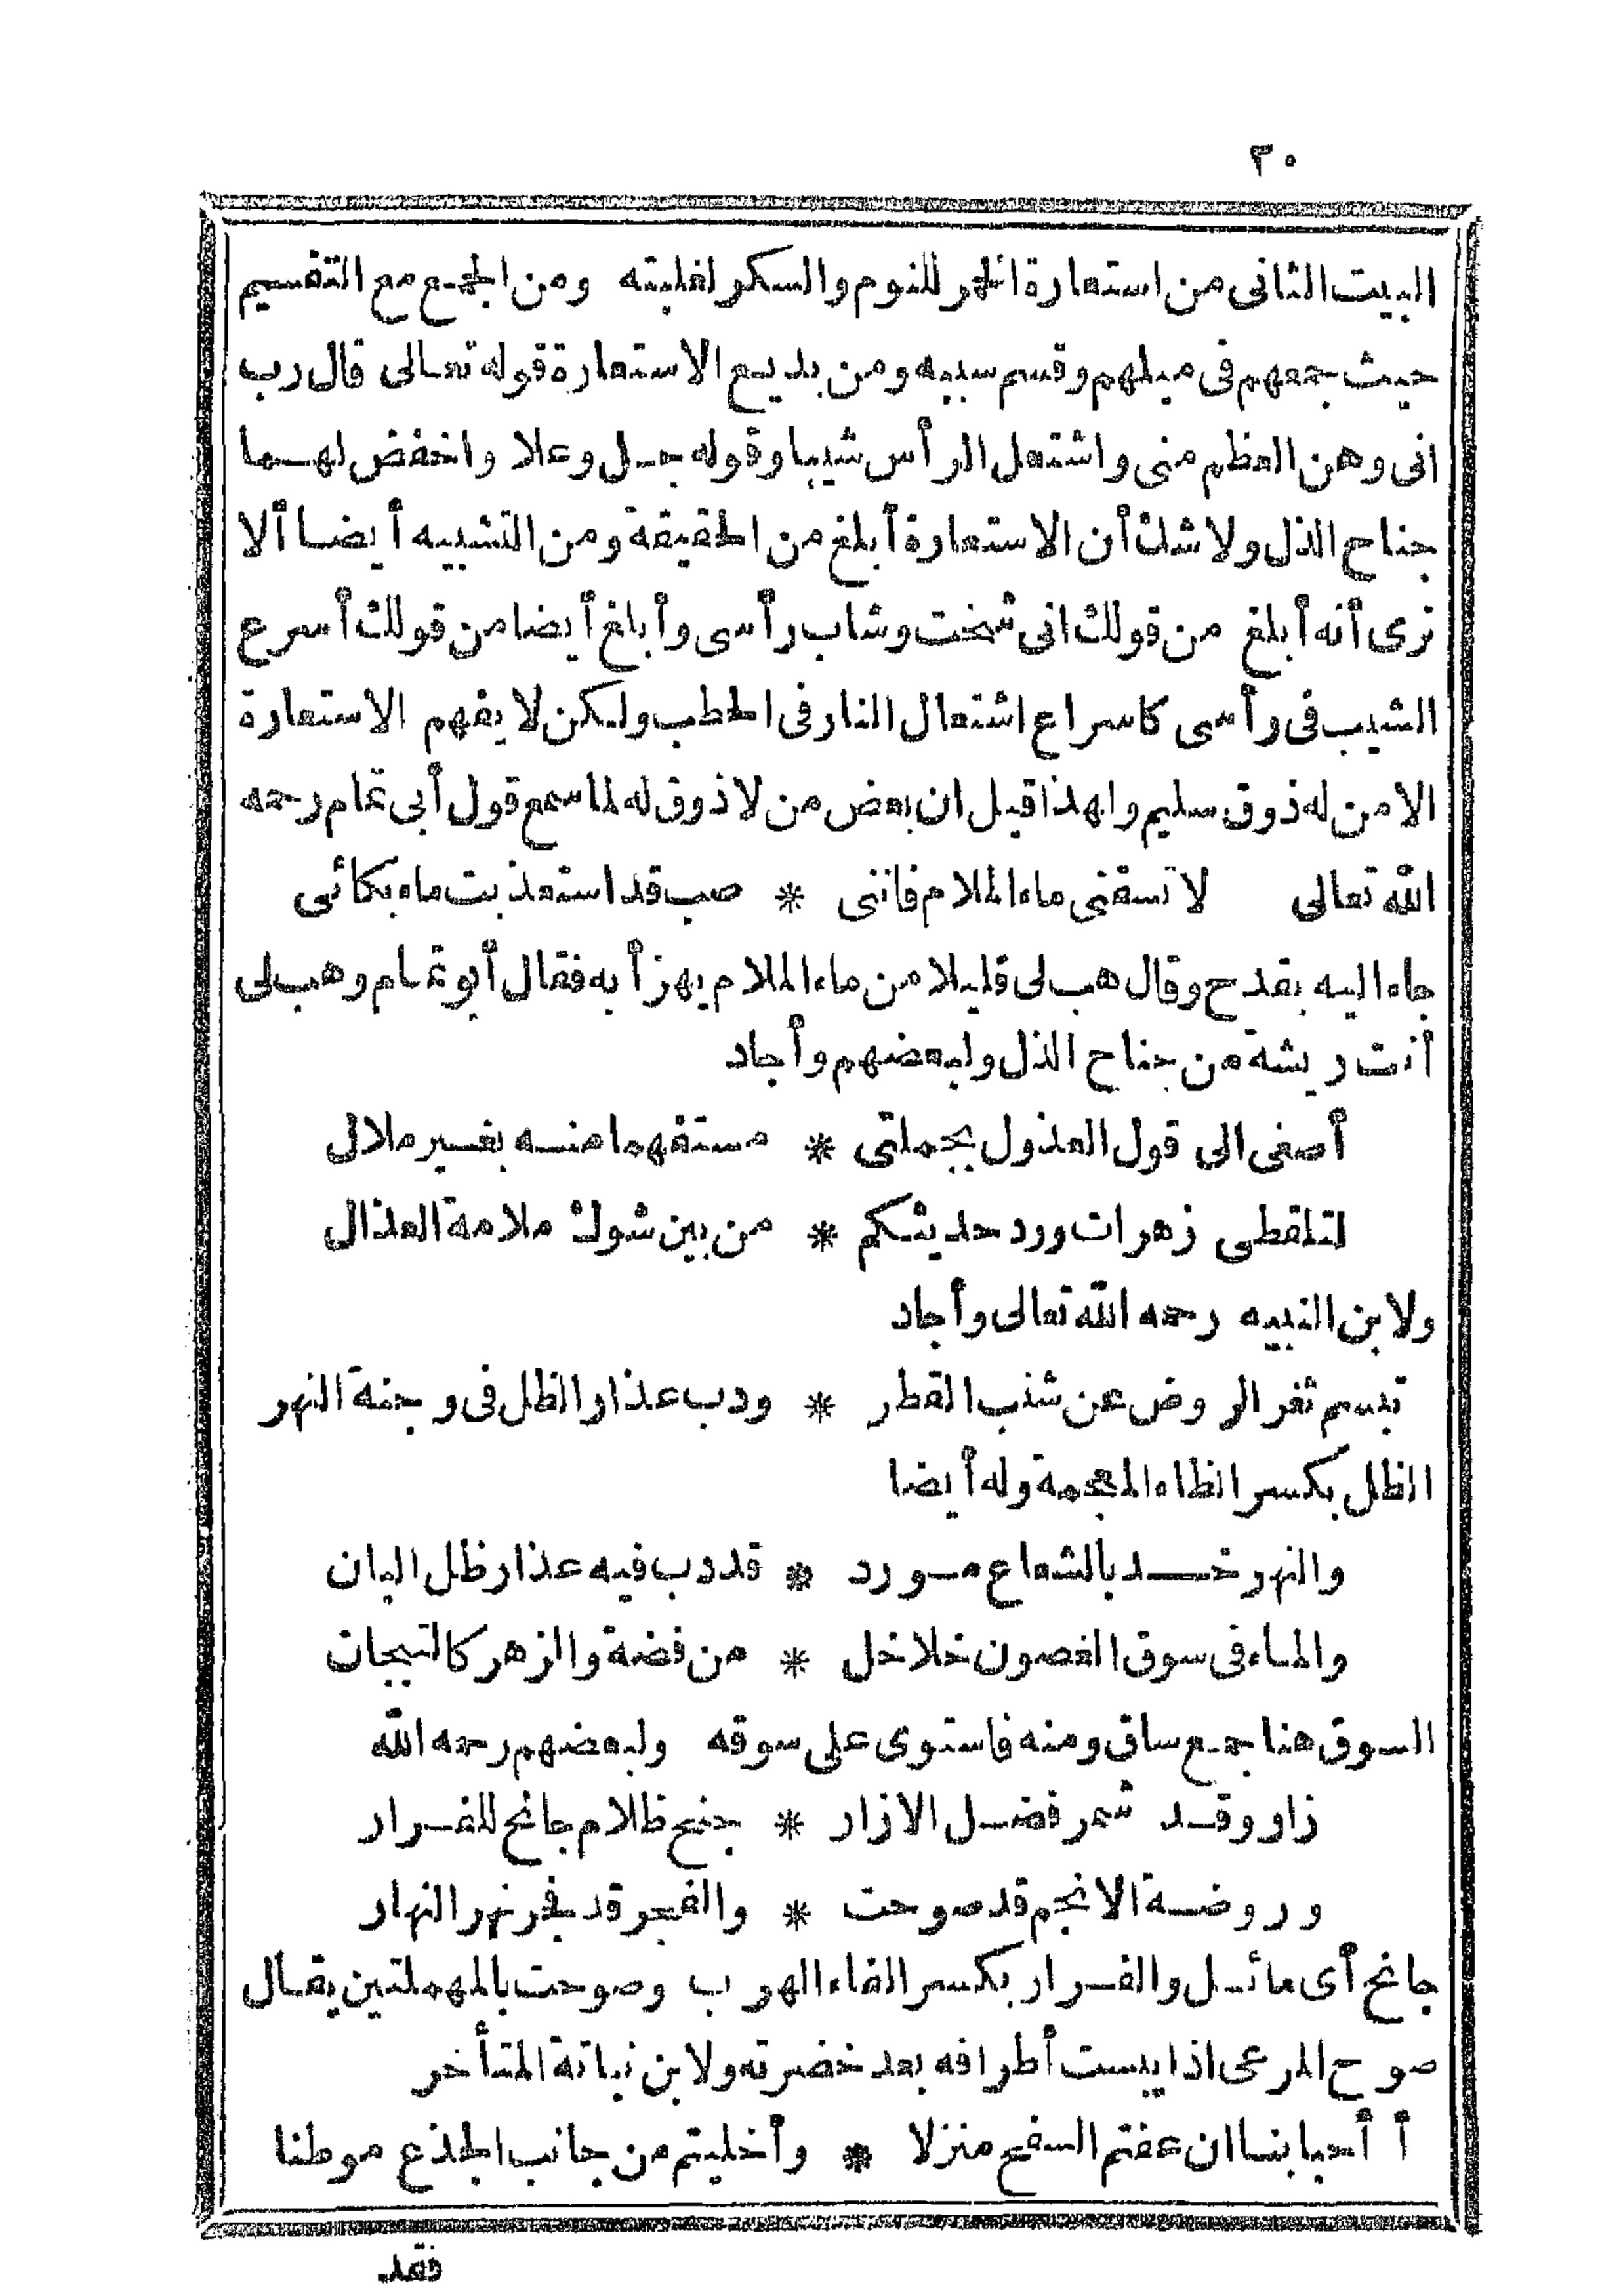 ٣٠
البيت الثانى من استعارة الخمر للنوم والسكر لغلبته ومن الجمع مع التقسيم
حيث جمعهم فى ميلهم وقسم سببه ومن بديع الاستعارة قوله تعالى قال رب
انى وهن العظم منى واشتعل الرأس شيبا وقوله جل وعلا واخفض لهما
جناح الذل ولا شك أن الاستعارة أبلغ من الحقيقة ومن التشبيه أيضا ألا
ترى أنه أبلغ من قولك انى شخت وشاب رأسى وأبلغ أيضا من قولك أسرع
الشيب فى رأسى كاسراع اشتعال النار فى الحطب ولكن لا يفهم الاستعارة
الا من له ذوق سليم ولهذا قيل ان بعض من لا ذوق له لما سمع قول أبى تمام رحمه
الله تعالى لا تسقنى ماء الملام فاننى * صب قد استعذبت ماء بكائى
جاء اليه بقدح وقال هب لى قليلا من ماء الملام يهزأ به فقال أبو تمام وهب لى
أنت ريشة من جناح الذل ولبعضهم وأجاد
أصغى الى قول العذول بجملتى * مستفهما منه بغير ملال
لتلقطى زهرات ورد حديثكم * من بين شوك ملامة العذال
ولابن النبيه رحمه الله تعالى وأجاد
تبسم ثغر الروض عن شنب القطر * ودب عذار الظل فى وجنة النهر
الظل بكسر الظاء المعجمة وله أيضا
والنهر خد بالشعاع مورد * قد دب فيه عذار ظل البان
والماء فى سوق الغصون خلاخل * من فضة والزهر كالتيجان
السوق هنا جمع ساق ومنه فاستوى على سوقه ولبعضهم رحمه الله
زار وقد شمر فضل الازار * جنح ظلام جانح للفرار
وروضة الانجم قد صوحت * والفجر قد فجر نهر النهار
جانح أى مائل والفرار بكسر الفاء الهرب وصوحت بالمهملتين يقال
صوح المرعى اذا يبست أطرافه بعد خضرته ولابن نباتة المتأخر
أ أحبابنا ان عفتم السفح منزلا * وأخليتم من جانب الجذع موطنا
فقد